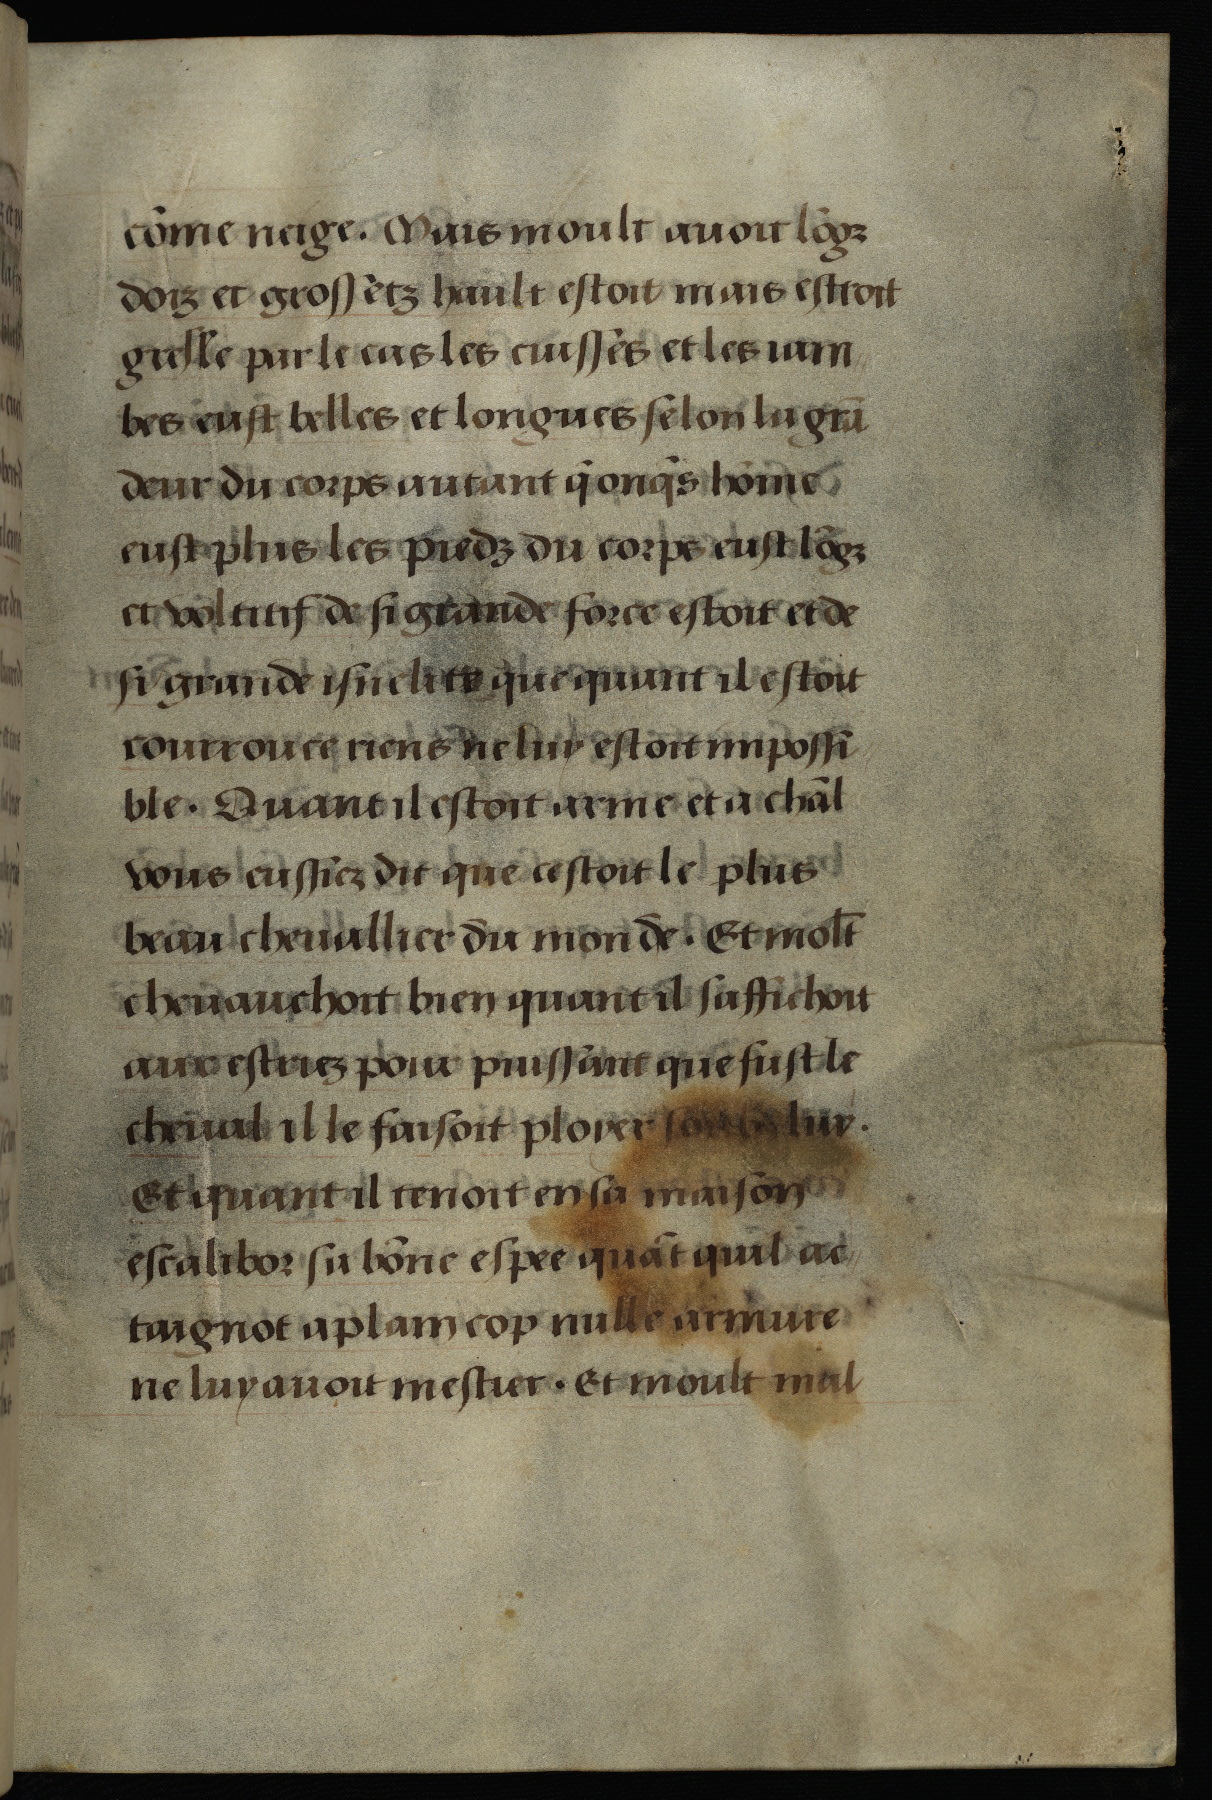 2
cōme neige. Mais moult auoit lōgz
doiz et grossetz hault estoit mais estroit
gresle par le cas les cuisses et les iam
bes eust belles et longues selon la grā
deur du corps autant q̄ onq̄s hōme
eust plus les piedz du corps eust lōgz
et voltitif de si grande force estoit et de
si grande isnelite que quant il estoit
courrouce riens ne luy estoit impossi
ble. Quant il estoit arme et a chāl
vous eussiez dit que cestoit le plus
beau cheuallier du monde. Et mol̄t
cheuauchoit bien quant il saffichoit
aux estriez pour puissant que fust le
cheual il le faisoit ployer soubz luy.
Et quant il tenoit en sa maison
escalibor sa bōne espee quāt quil ac
taignot a plain cop nulle armure
ne luy auoit mestier. Et moult mal